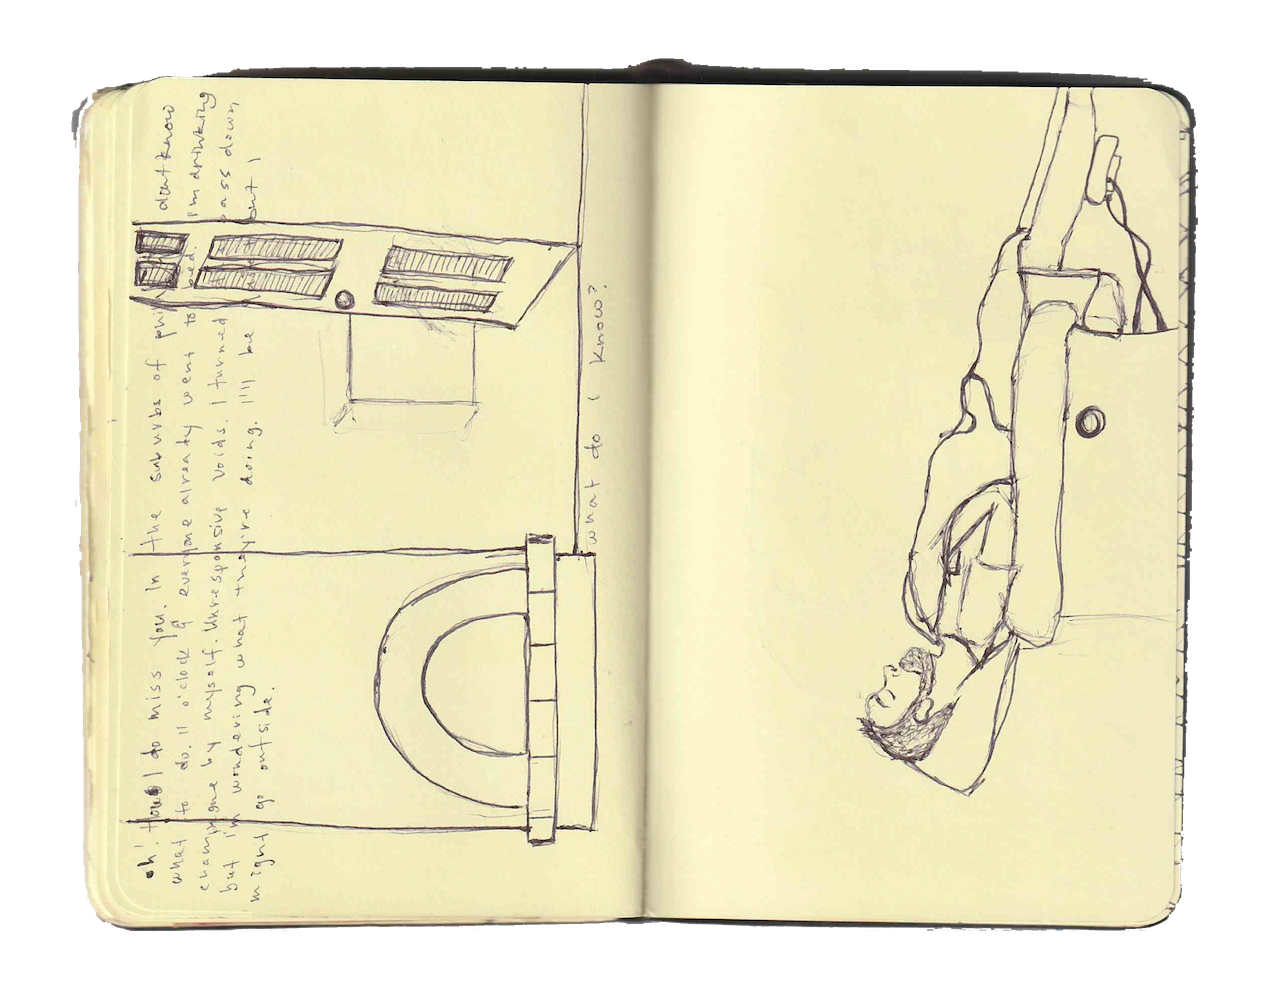 oh! How I do miss you. In the suburbs of phil dont know
what to do. 11 o'clock & everyone already went to bed. I'm drinking
champagne by myself. Unresponsive voids. I turned pass down
but I'm wondering what they're doing. I'll be but I
might go outside.
what do I know?